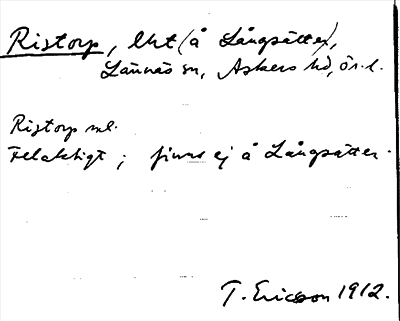 Ristorp, lht (å Långsätter),
Lännäs sn, Askers hd, ör. l.
Ristorp ml.
Felaktigt; finns ej å Långsätter.
T. Ericson 1912.